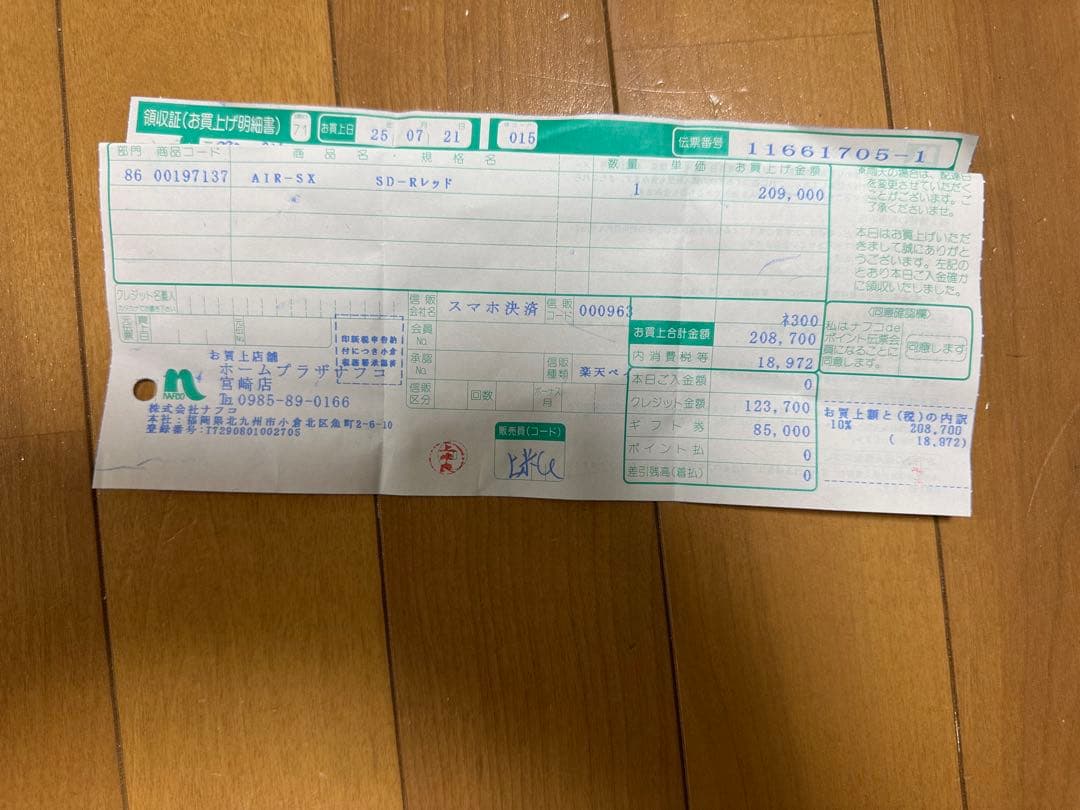 領収証(お買上げ明細書) 71 お買上日 25 07 21 015 伝票番号 11661705-1
部門 商品コード 商品名・規格名 数量 単価 お買上げ金額
86 00197137 AIR-SX SD-Rレッド 1 209,000
の場合は、配達日
を変更させていただく
ことがございます。ご
了承くださいませ。
本日はお買上げいただ
きまして誠にありがと
うございます。左記の
とおり本日ご入金確か
に領収いたしました。
クレジット名義人
信販会社名 スマホ決済 信販コード 000963
ネ300
会員No.
お買上合計金額 208,700
承認No.
内消費税等 18,972
信販種類 楽天ペイ
信販区分 回数 ボーナス月
本日ご入金額 0
クレジット金額 123,700
ギフト券 85,000
ポイント払 0
差引残高(着払) 0
同意確認欄
私はナフコde
ポイント伝票会
員になることに
同意します。
同意します
お買上額と(税)の内訳
10% 208,700
( 18,972)
印紙税申告納
付につき小倉
税務署承認済
お買上店舗
ホームプラザナフコ
宮崎店
℡0985-89-0166
NAFCO
株式会社ナフコ
本社:福岡県北九州市小倉北区魚町2-6-10
登録番号:T7290801002705
販売員(コード)